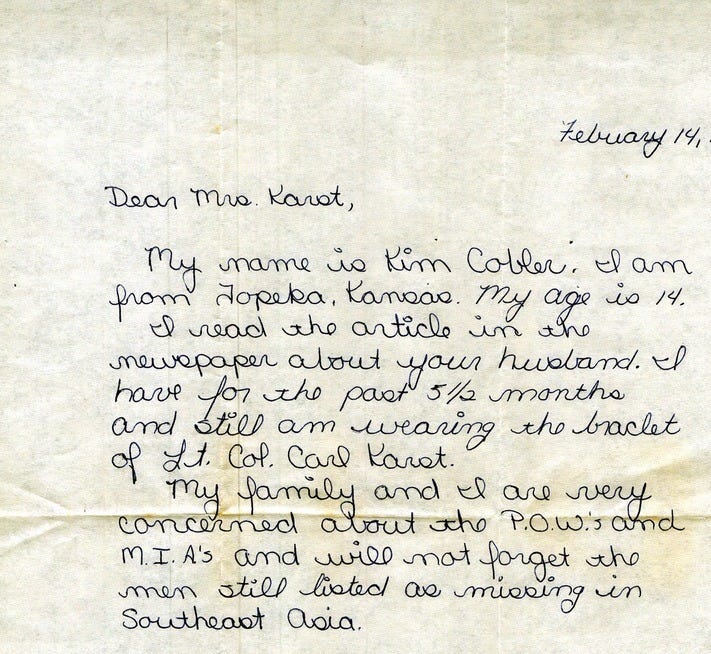 February 14,
Dear Mrs. Karst,
My name is Kim Cobler. I am
from Topeka, Kansas. My age is 14.
I read the article in the
newspaper about your husband. I
have for the past 5 1/2 months
and still am wearing the braclet
of Lt. Col. Carl Karst.
My family and I are very
concerned about the P.O.W.'s and
M.I.A's and will not forget the
men still listed as missing in
Southeast Asia.